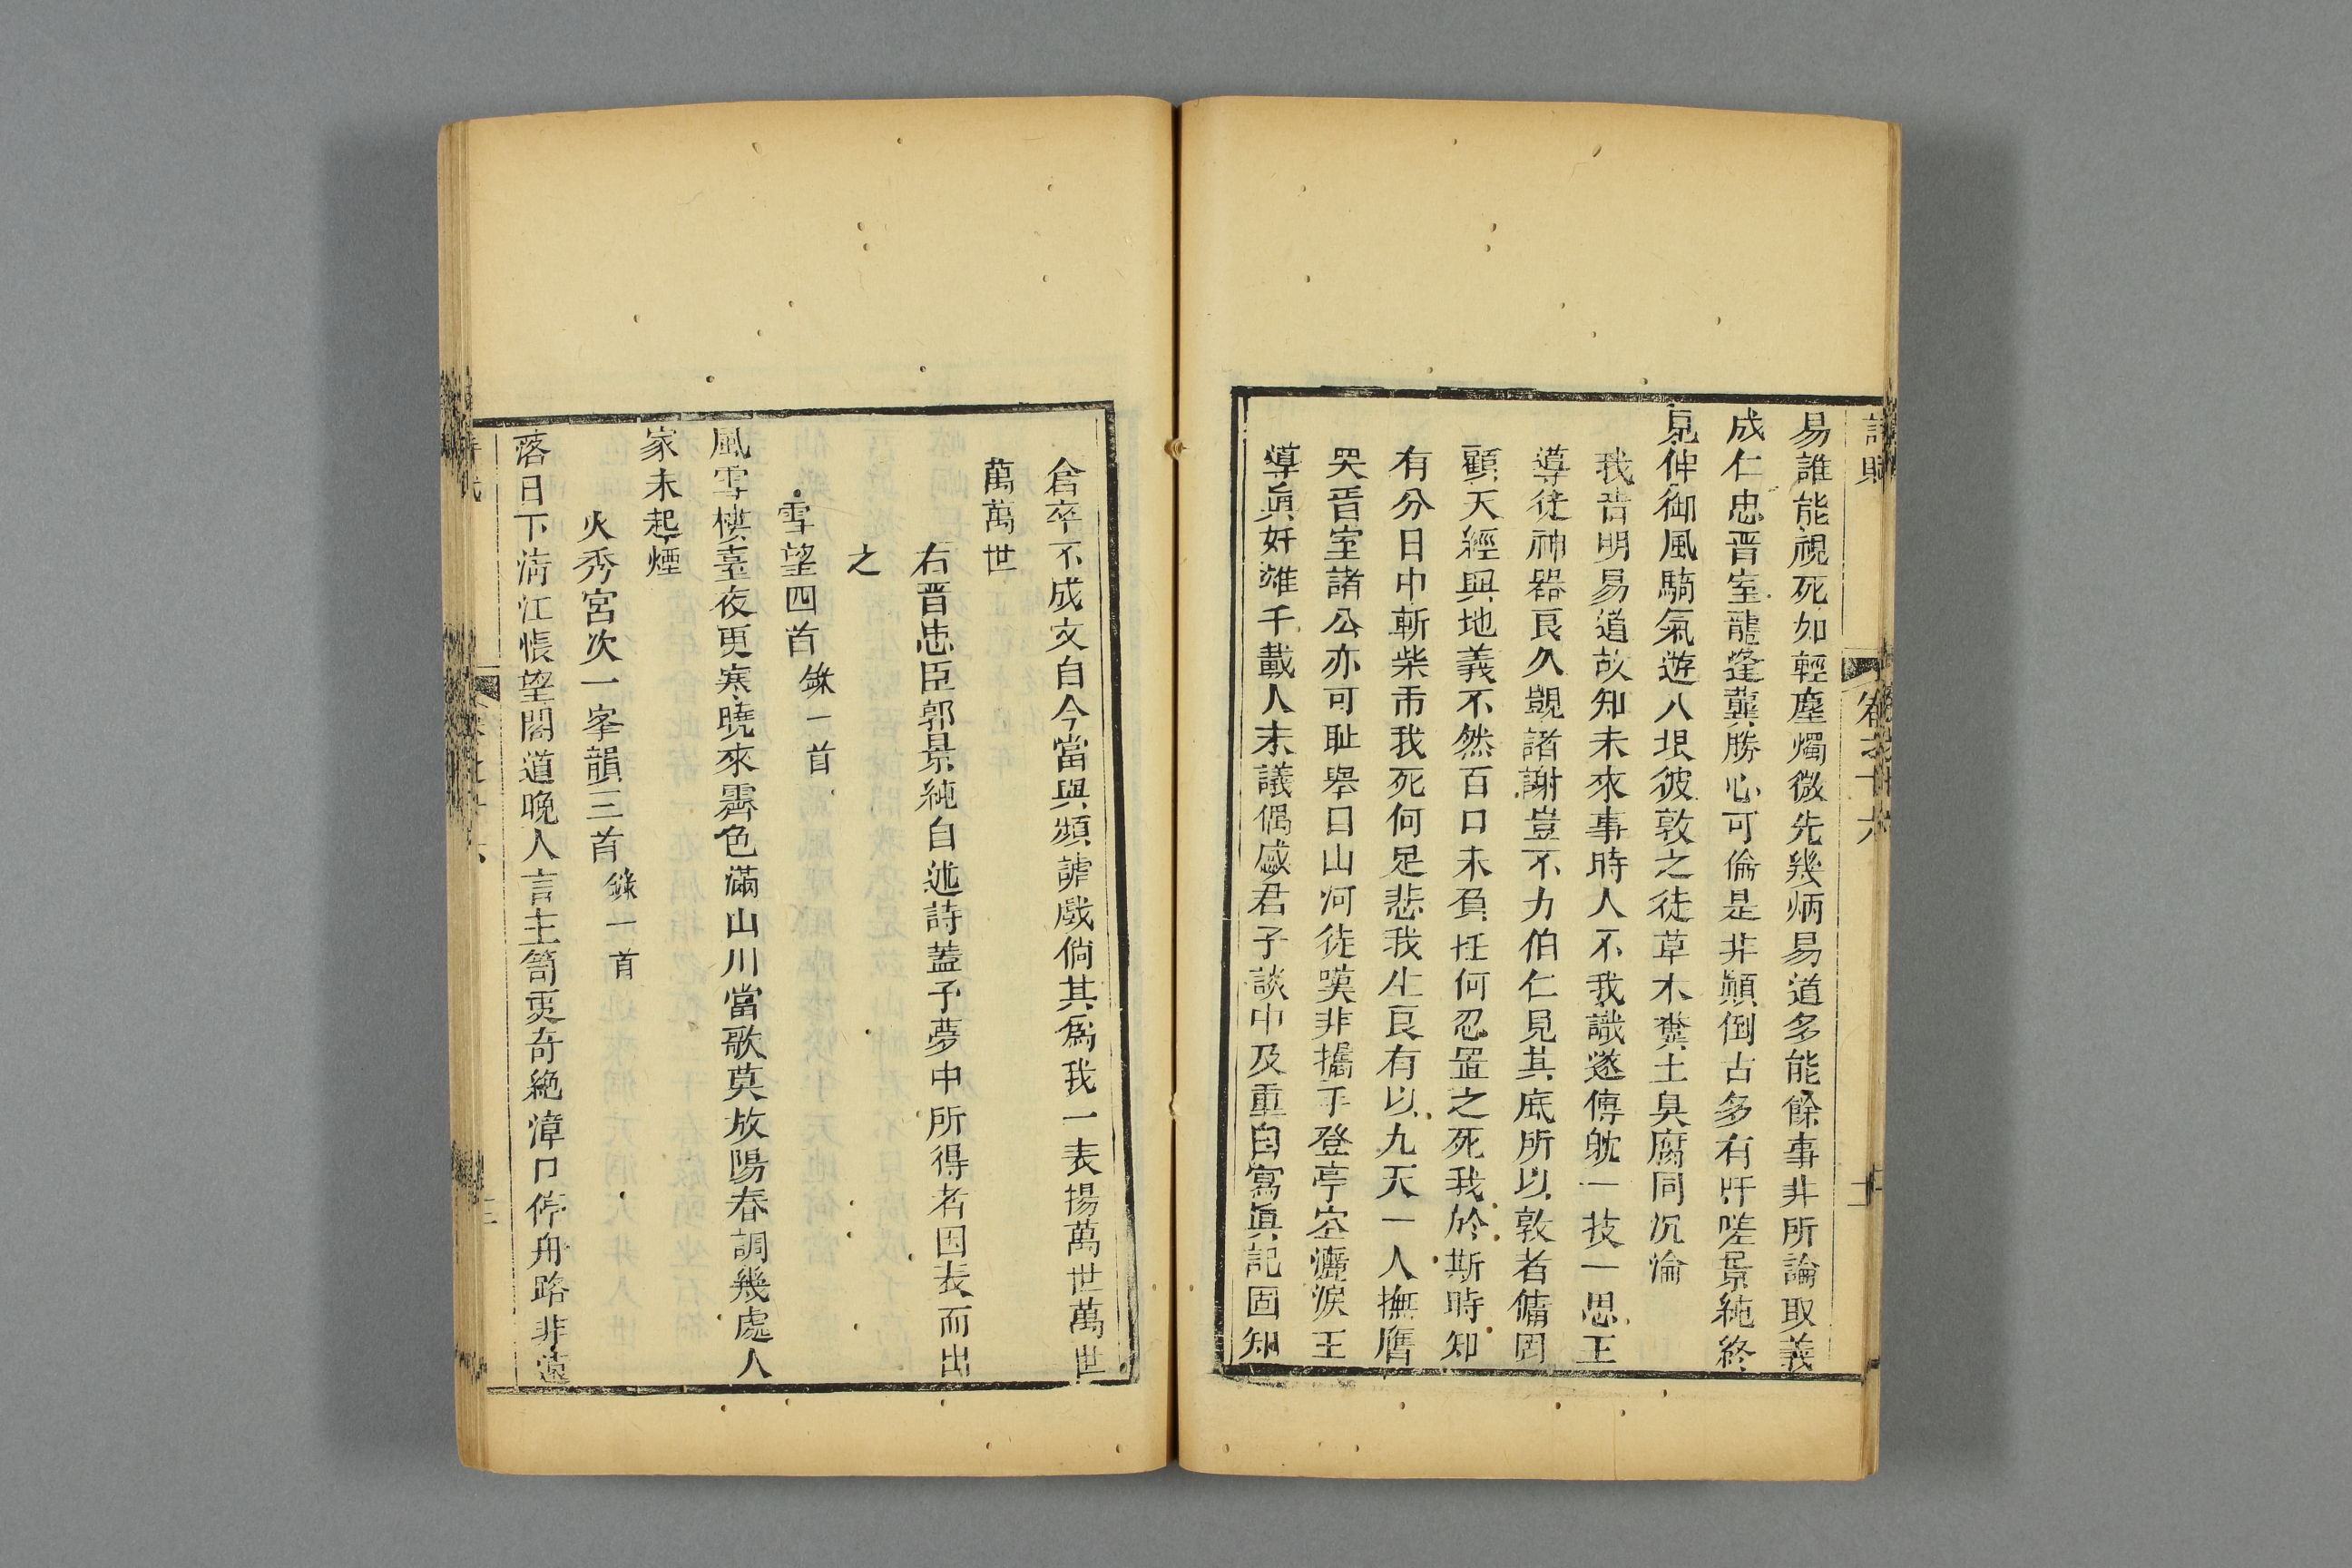 易誰能視死如輕塵燭微先幾炳易道多能餘事非所論取義
成仁忠晋室龍逄龔勝心可倫是非顛倒古多有吁嗟景純終
見伸御風騎氣遊八垠彼敦之徒草木糞土臭腐同沉淪
我昔明易道故知未來事時人不我識遂傳躭一技一思王
導徒神器良久覬諸謝豈不力伯仁見其底所以敦者傭罔
顧天經與地義不然百口未負托何忍置之死我於斯時知
有分日中斬柴市我死何足悲我生良有以九天一人撫膺
哭晋室諸公亦可耻舉目山河徒嘆非攜手登亭空灑淚王
導真奸雄千載人未議偶感君子談中及重自寫真記固知
倉卒不成文自今當與頻謔戲倘其爲我一表揚萬世萬世
萬萬世
右晋忠臣郭景純自述詩蓋予夢中所得者因表而出
之
雪望四首 錄一首
風雪樓臺夜更寒曉來霽色滿山川當歌莫放陽春調幾處人
家未起煙
火秀宮次一峯韻三首 錄一首
落日下淸江悵望閣道晚人言玉笥更奇絶漳口停舟路非遠